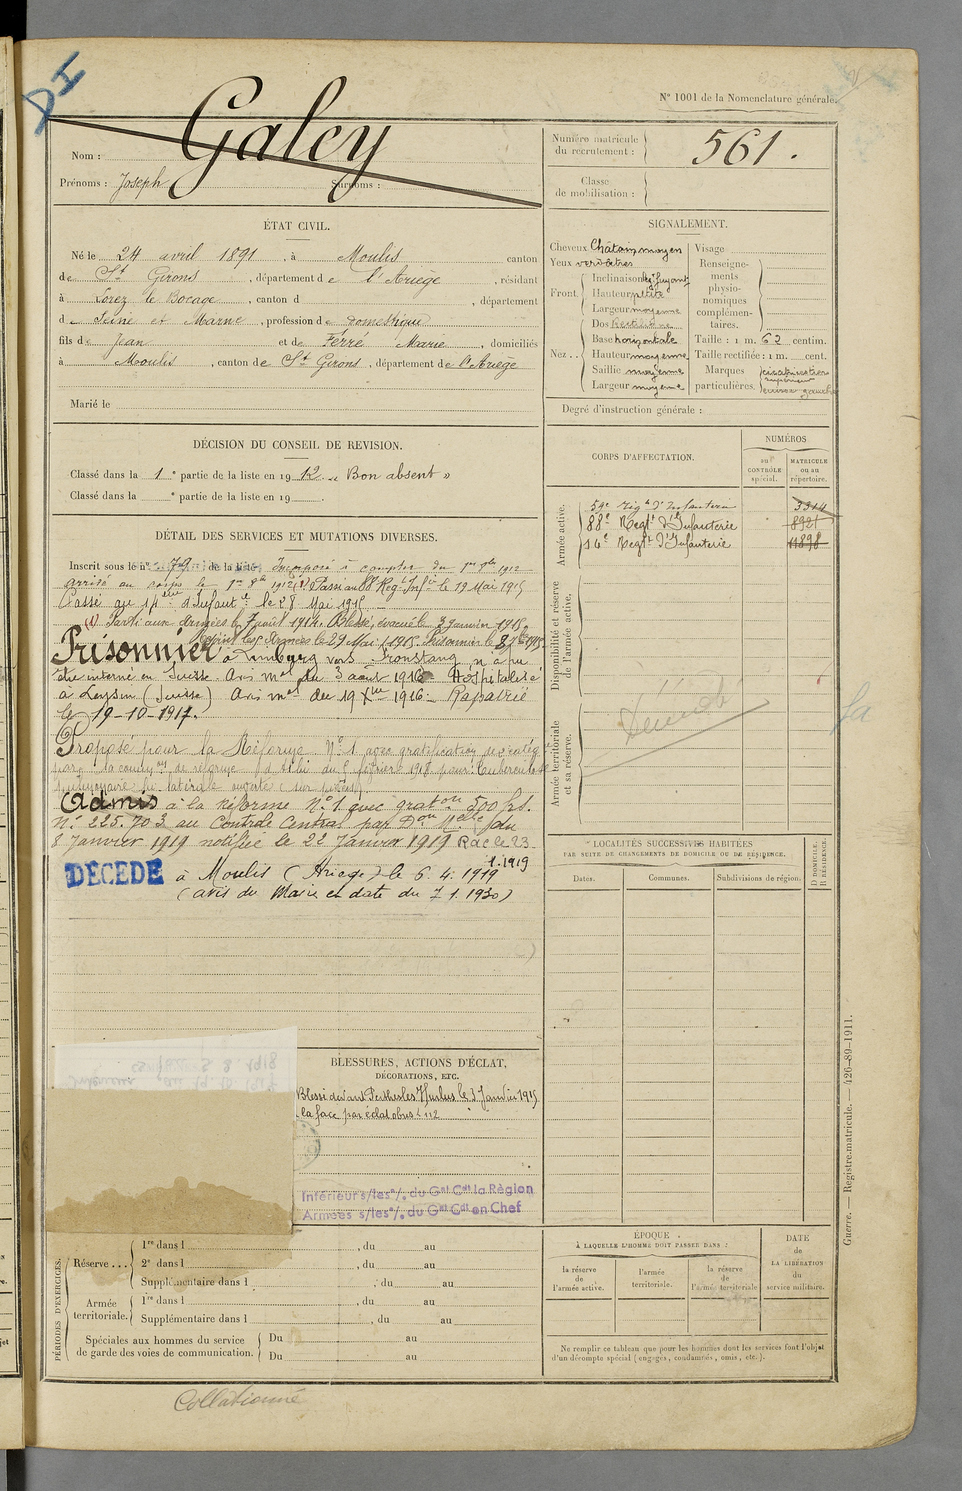 DI
N° 1001 de la Nomenclature générale.
Galey
Nom :
Prénoms : Joseph Surnoms :
Numéro matricule du recrutement : 561.
Classe de mobilisation :
ÉTAT CIVIL.
Né le 24 avril 1891, à Moulis canton
de St Girons, département de l'Ariège, résidant
à Lorez le Bocage, canton d , département
d Seine et Marne, profession de domestique
fils de Jean et de Ferré Marie, domiciliés
à Moulis, canton de St Girons, département de l'Ariège
Marié le
SIGNALEMENT.
Cheveux Châtain moyen
Yeux verdâtres
Front. Inclinaison fuyant
Hauteur petite
Largeur moyenne
Nez... Dos Rectiligne
Base horizontale
Hauteur moyenne
Saillie moyenne
Largeur moyenne
Visage
Renseignements physionomiques complémentaires.
Taille : 1 m. 62 centim.
Taille rectifiée : 1 m. cent.
Marques particulières. cicatrice
Degré d'instruction générale :
DÉCISION DU CONSEIL DE REVISION.
Classé dans la 1e partie de la liste en 1912 « Bon absent »
Classé dans la e partie de la liste en 19 .
CORPS D'AFFECTATION.
NUMÉROS
au CONTRÔLE spécial.
MATRICULE ou au répertoire.
Armée active.
59e Régt d'Infanterie 3314
88e Régt d'Infanterie 8921
14e Régt d'Infanterie 11898
Disponibilité et réserve de l'armée active.
Armée territoriale et sa réserve.
Décédé
DÉTAIL DES SERVICES ET MUTATIONS DIVERSES.
Inscrit sous le n° 79 de la liste Incorporé à compter du 1er 8bre 1912
arrivé au corps le 1er 8bre 1912 (1) Passé au 88e Reg. Infie le 19 Mai 1915
Passé au 14eme d'Infantie le 28 Mai 1915
(1) Parti aux armées le 7 août 1914. Blessé, évacué le 3 janvier 1915.
Rejoint les Armées le 29 Mai 1915. Prisonnier le
Prisonnier à Limburg
être interné en Suisse. Avis mel du 3 août 1916 Hospitalisé
à Leysin (Suisse) Avis mel du 19 Xbre 1916 - Rapatrié
le 19-10-1917.
Proposé pour la Réforme N° 1 avec gratification
par la common de réforme du 5 février 1918 pour : tuberculose
pulmonaire bi latérale ouverte
Admis à la réforme N° 1 avec graton 500 frs.
N° 225.703 au Contrôle Central par Don Melle du
8 Janvier 1919 notifiée le 22 Janvier 1919 Rac le 23.
1.1919
DÉCÉDÉ à Moulis (Ariège) le 6.4.1919
(avis du Maire en date du 7.1.1930)
LOCALITÉS SUCCESSIVES HABITÉES
PAR SUITE DE CHANGEMENTS DE DOMICILE OU DE RÉSIDENCE.
Dates.
Communes.
Subdivisions de région.
D DOMICILE.
R RÉSIDENCE.
BLESSURES, ACTIONS D'ÉCLAT,
DÉCORATIONS, ETC.
Blessé devant Perthes les Hurlus le 3 Janvier 1915
la face par éclat obus
Intérieur s/les°/. du Gal Cdt la Région
Armées s/les°/. du Gal Cdt en Chef
PÉRIODES D'EXERCICES.
Réserve... 1re dans l , du au
2e dans l , du au
Supplémentaire dans l , du au
Armée territoriale. 1re dans l , du au
Supplémentaire dans l , du au
Spéciales aux hommes du service de garde des voies de communication. Du au
Du au
ÉPOQUE
À LAQUELLE L'HOMME DOIT PASSER DANS :
la réserve de l'armée active.
l'armée territoriale.
la réserve de l'armée territoriale
DATE de LA LIBÉRATION du service militaire.
Ne remplir ce tableau que pour les hommes dont les services font l'objet
d'un décompte spécial (engagés, condamnés, omis, etc.).
Guerre. — Registre matricule. — 426-89-1911.
Collationné